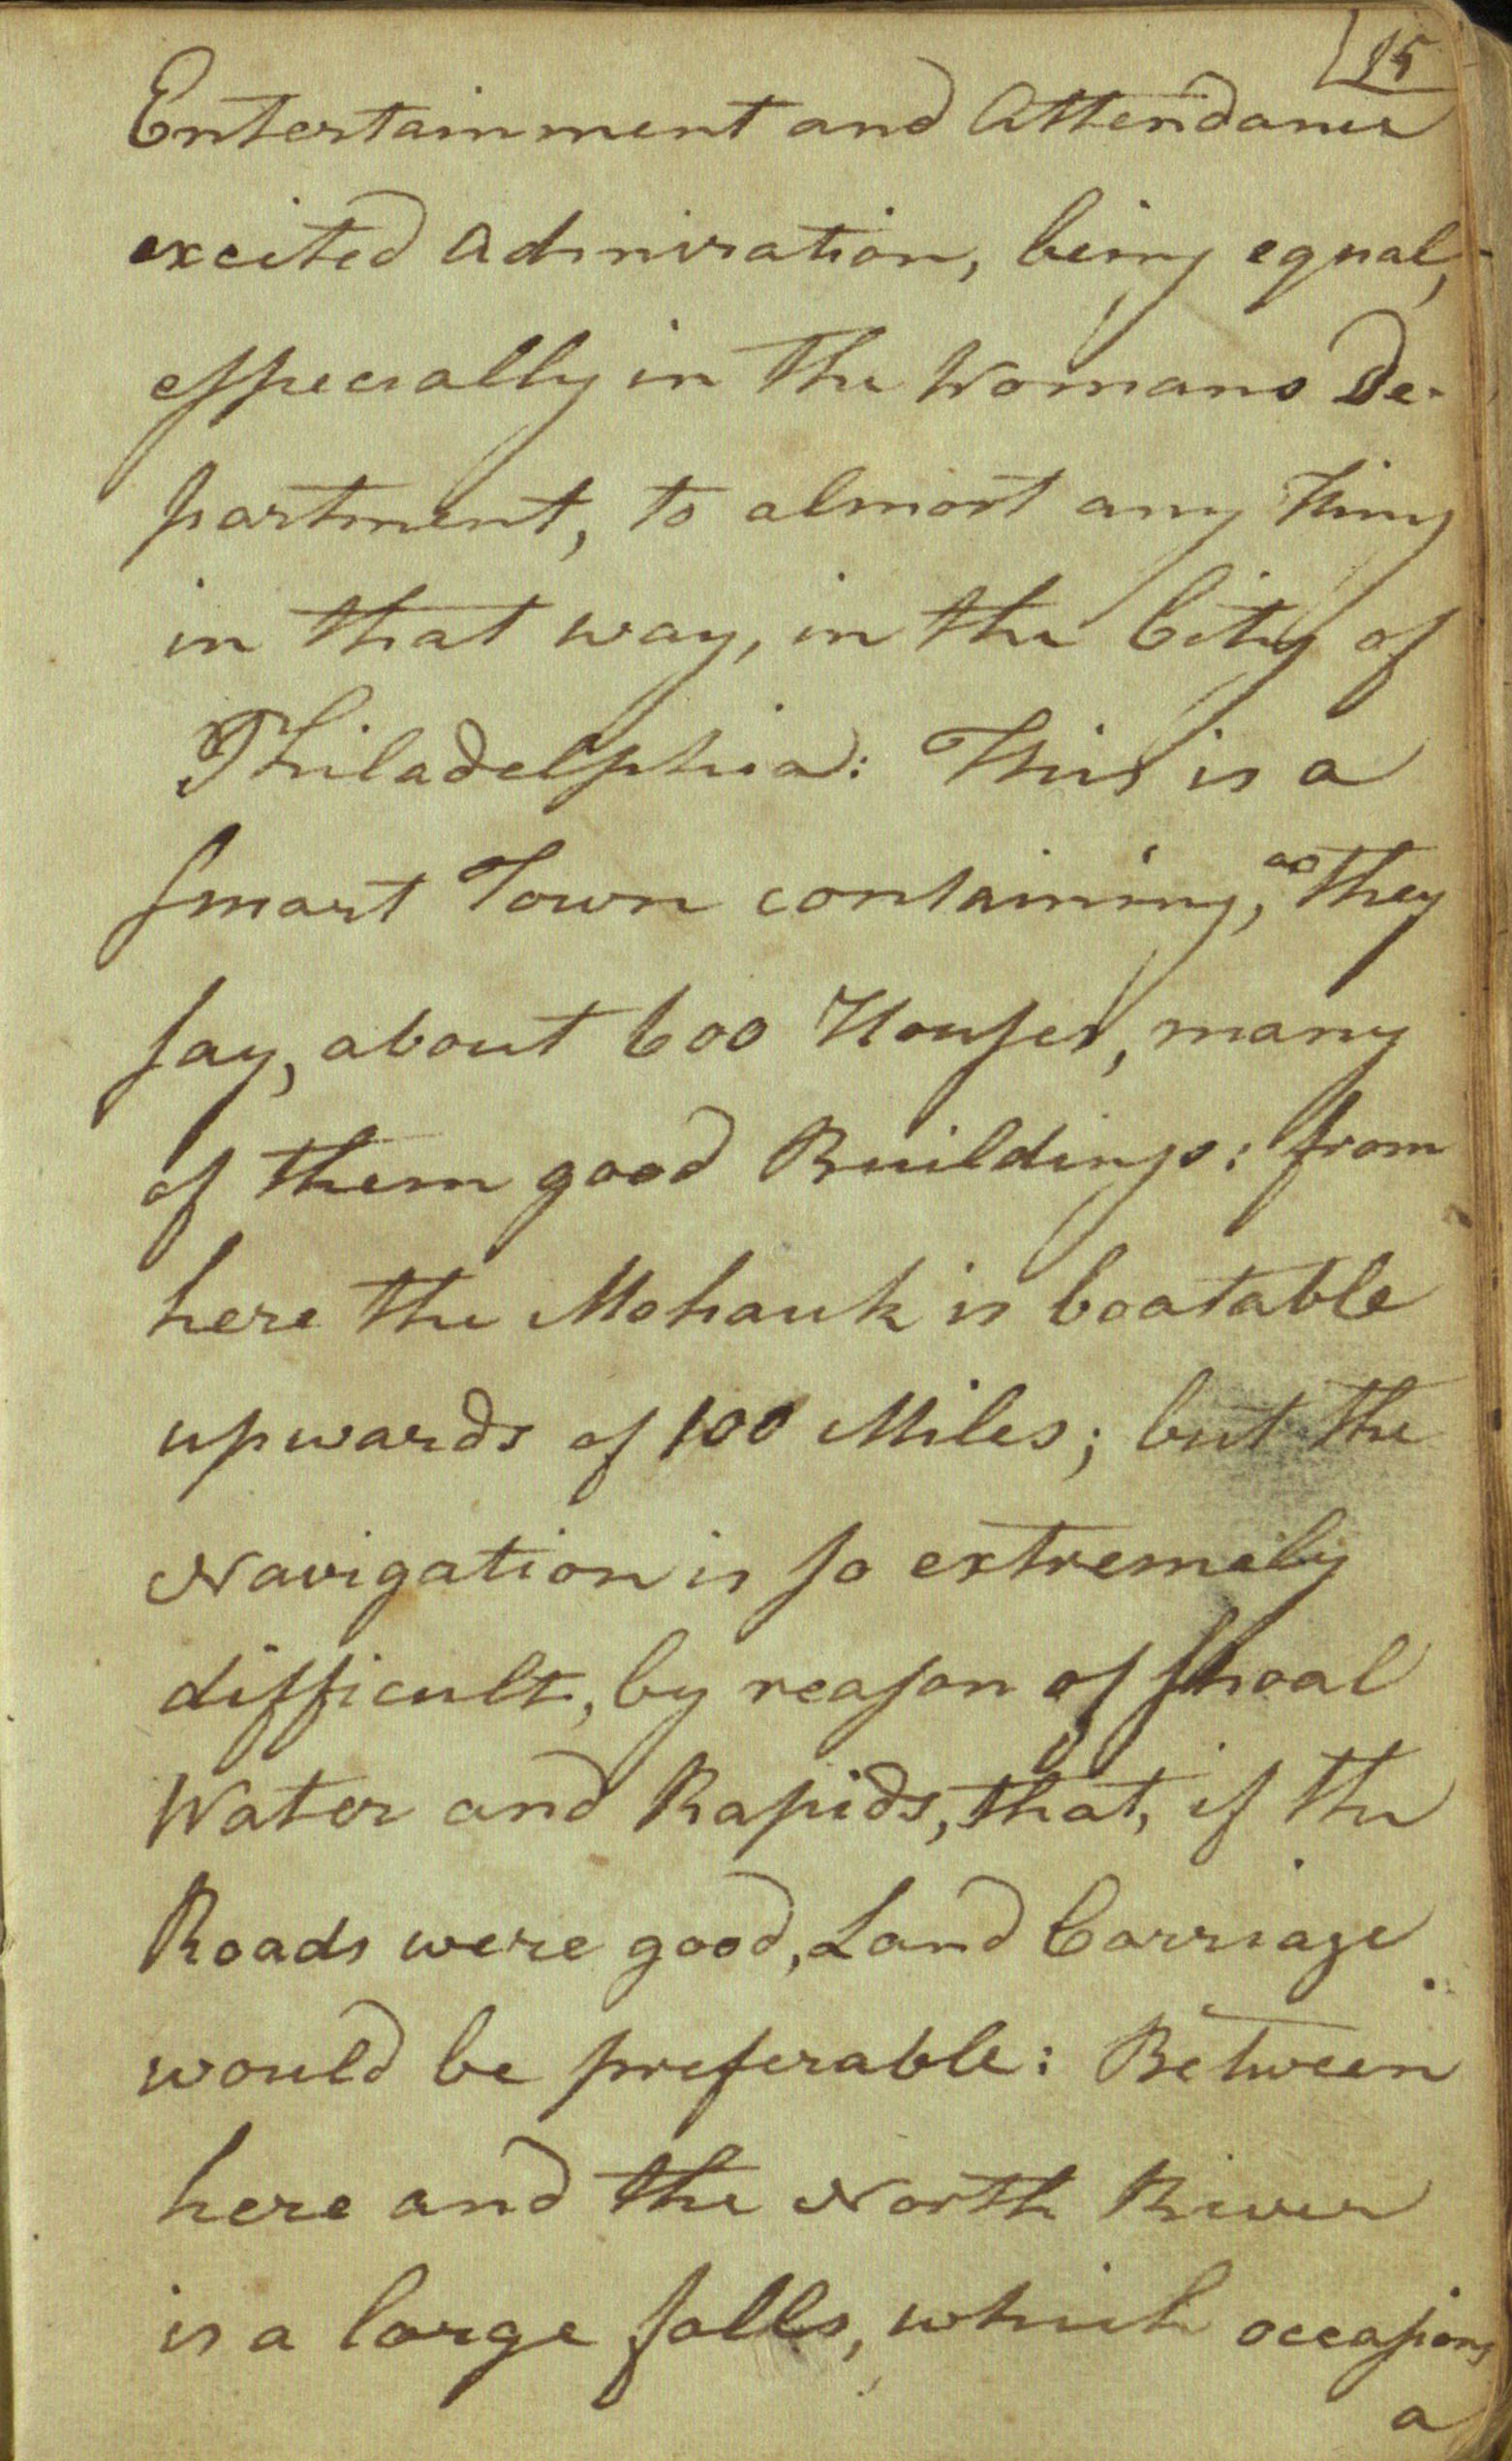 15
Entertainment and Attendance
excited Admiration, being equal,
especially in the Womans De-
partment, to almost any thing
in that way, in the City of
Philadelphia: This is a
smart Town containing, as they
say, about 600 Houses, many
of them good Buildings: from
here the Mohauk is boatable
upwards of 100 Miles; but the
Navigation is so extremely
difficult, by reason of shoal
Water and Rapids, that, if the
Roads were good, Land Carriage
would be preferable: Between
here and the North River
is a large falls, which occasions
a